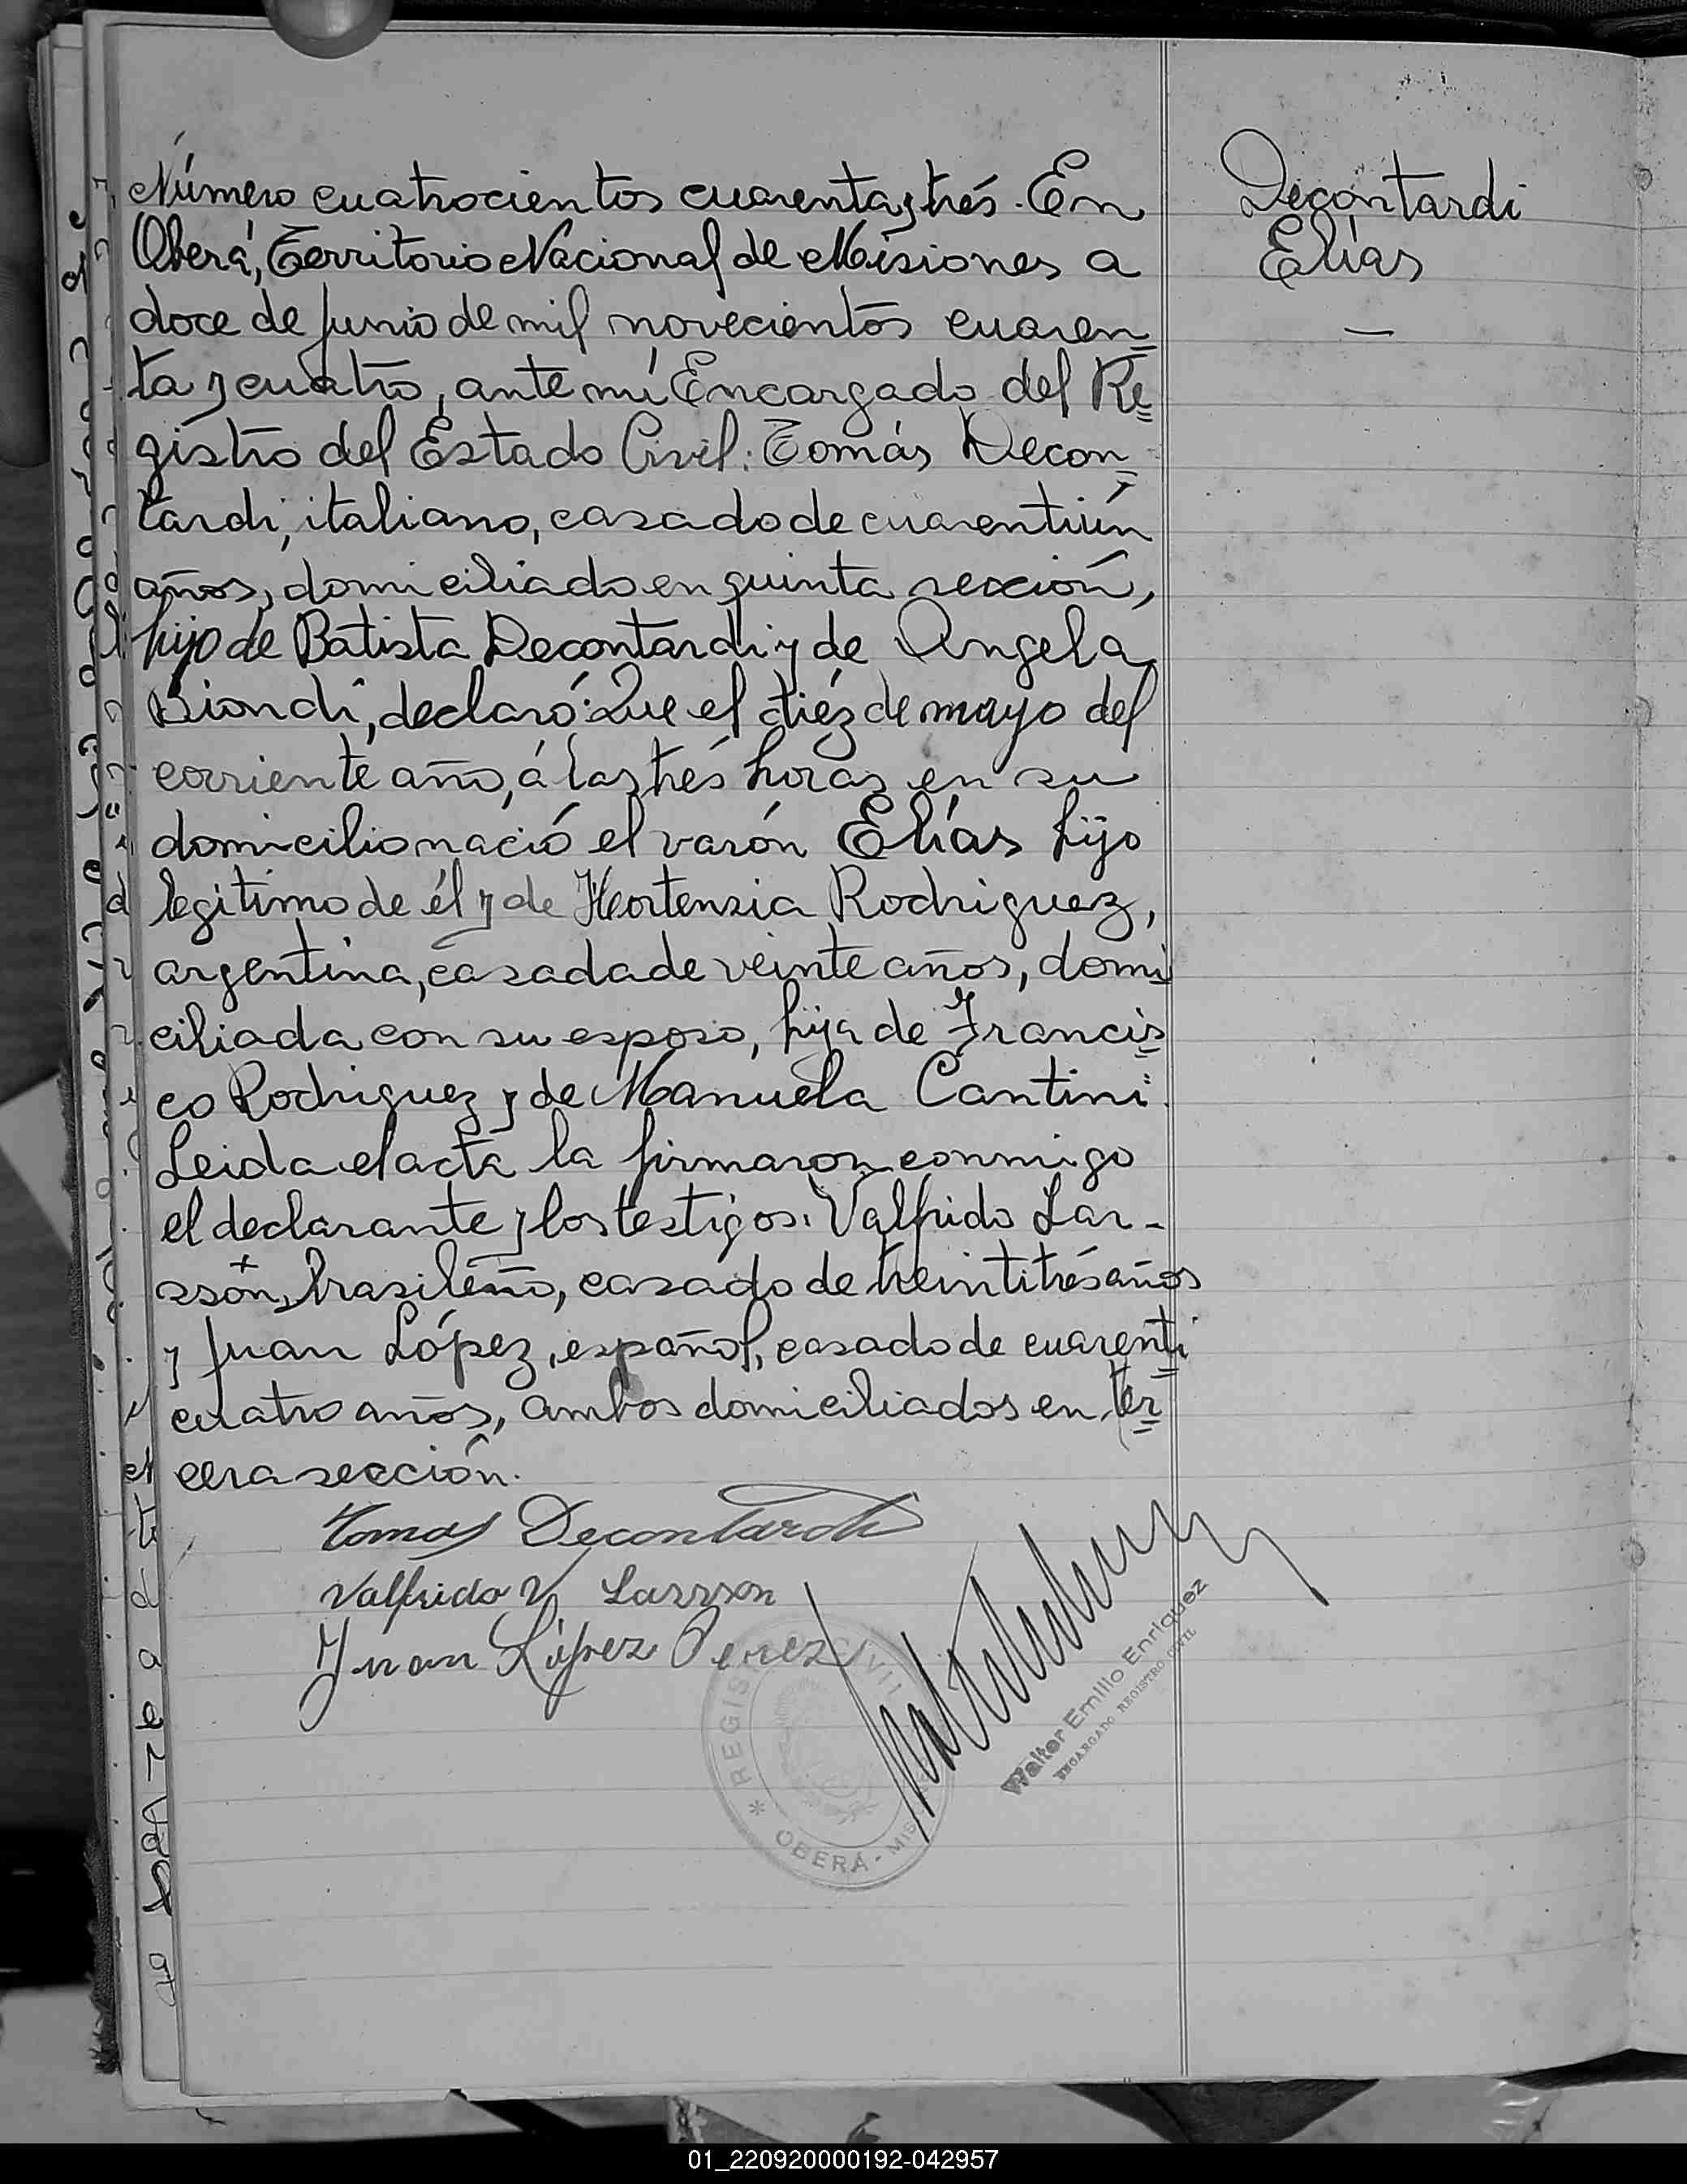 Número cuatrocientos cuarenta y trés. En
Oberá, Territorio Nacional de Misiones a
doce de Junio de mil novecientos cuaren=
ta y cuatro, ante mí Encargado del Re=
gistro del Estado Civil: Tomás Decon=
tardi, italiano, casado de cuarentiún
años, domiciliado en quinta sección,
hijo de Batista Decontardi y de Angela
Biondi, declaró: Que el diéz de mayo del
corriente año, á las trés horas en su
domicilio nació el varón Elías hijo
legitimo de él y de Hortensia Rodriguez,
argentina, casada de veinte años, domi
ciliada con su esposo, hija de Francis=
co Rodriguez y de Manuela Cantini.
Leida el acta la firmaron conmigo
el declarante y los testigos: Valfrido Lar-
sson, brasileño, casado de treintitrés años
y Juan López, español, casado de cuarenti=
cuatro años, ambos domiciliados en ter=
cera sección.
Decontardi
Elías
Tomas Decontardi
Valfrido V. Larsson
Juan López Perez
REGIS CIVIL
* OBERÁ - MIS
Walter Emilio Enriquez
ENCARGADO REGISTRO CIVIL
01_220920000192-042957